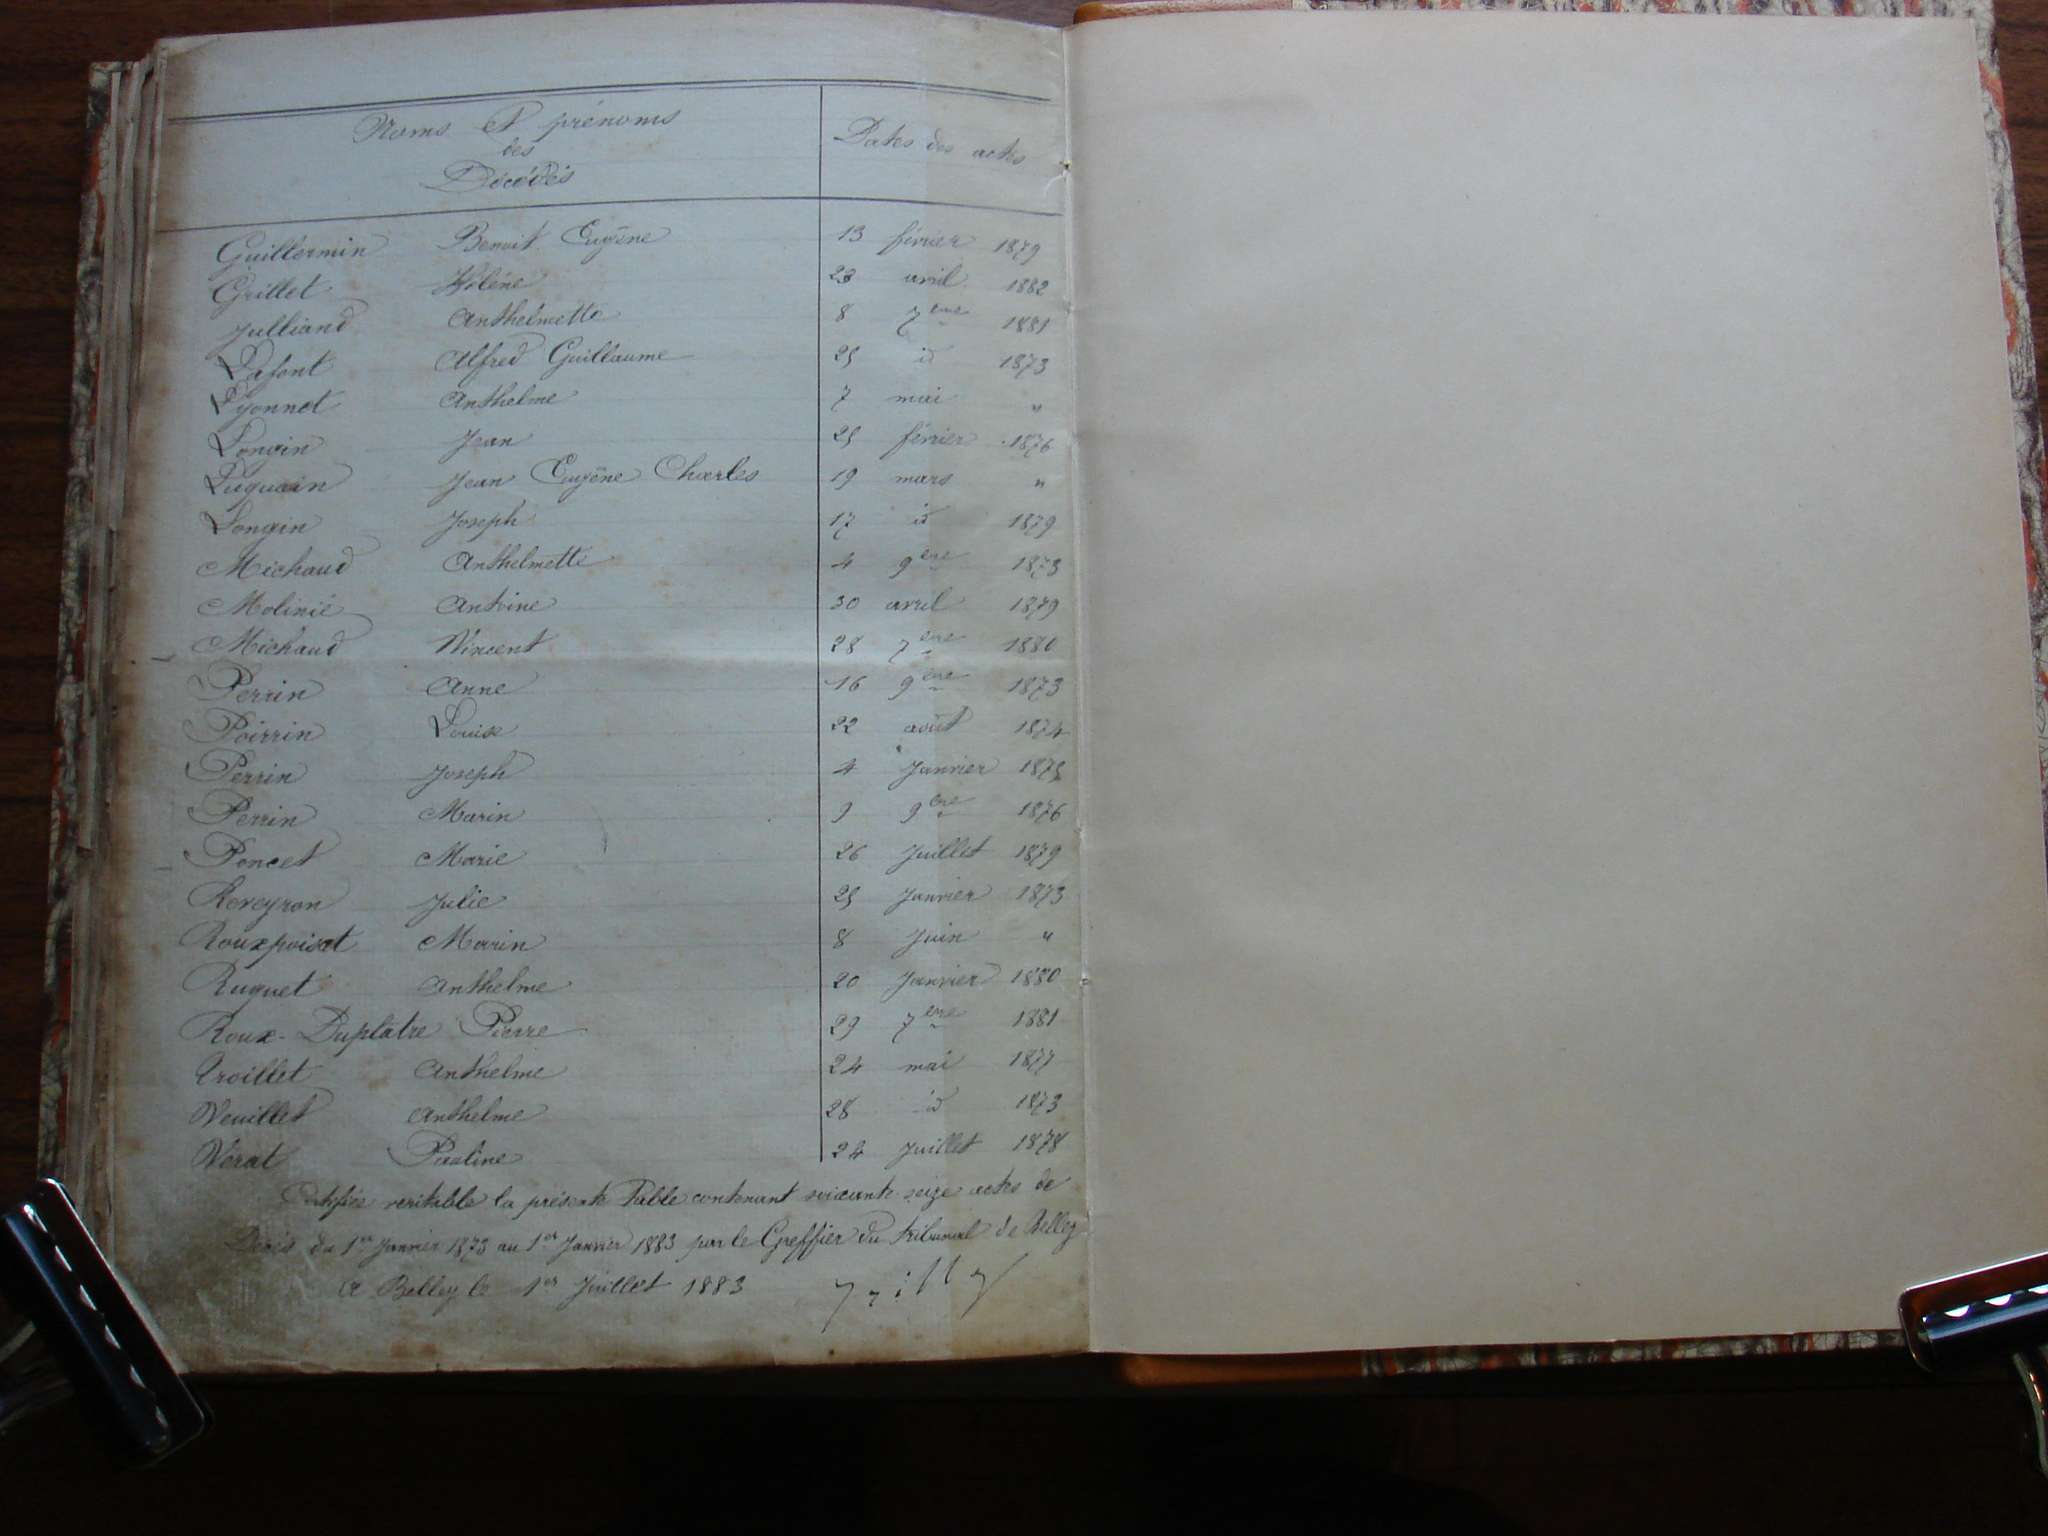 Noms et prénoms
des
Décédés
Dates des actes
Guillermin Benoit Eugène 13 février 1879
Grillet Hélène 23 avril 1882
Julliand Anthelmette 8 7bre 1881
Lafont Alfred Guillaume 25 id 1873
Lyonnet Anthelme 7 mai "
Longin Jean 25 février 1876
Luquain Jean Eugène Charles 19 mars "
Longin Joseph 17 id 1879
Michaud Anthelmette 4 9bre 1873
Molinié Antoine 30 avril 1879
Michaud Vincent 28 7bre 1880
Perrin Anne 16 9bre 1873
Poirrin Louise 22 août 1874
Perrin Joseph 4 Janvier 1875
Perrin Marin 9 9bre 1876
Poncet Marie 26 Juillet 1879
Reveyron Julie 25 Janvier 1873
Rouxpoiset Marin 8 Juin "
Ruguet Anthelme 20 Janvier 1880
Roux-Duplâtre Pierre 29 7bre 1881
Troillet Anthelme 24 mai 1877
Veuillet Anthelme 28 id 1873
Vérat Pauline 24 Juillet 1878
Certifiée veritable la présente Table contenant soixante-seize actes de
Décès du 1er Janvier 1873 au 1er Janvier 1883 par le Greffier du tribunal de Belley
A Belley le 1er Juillet 1883